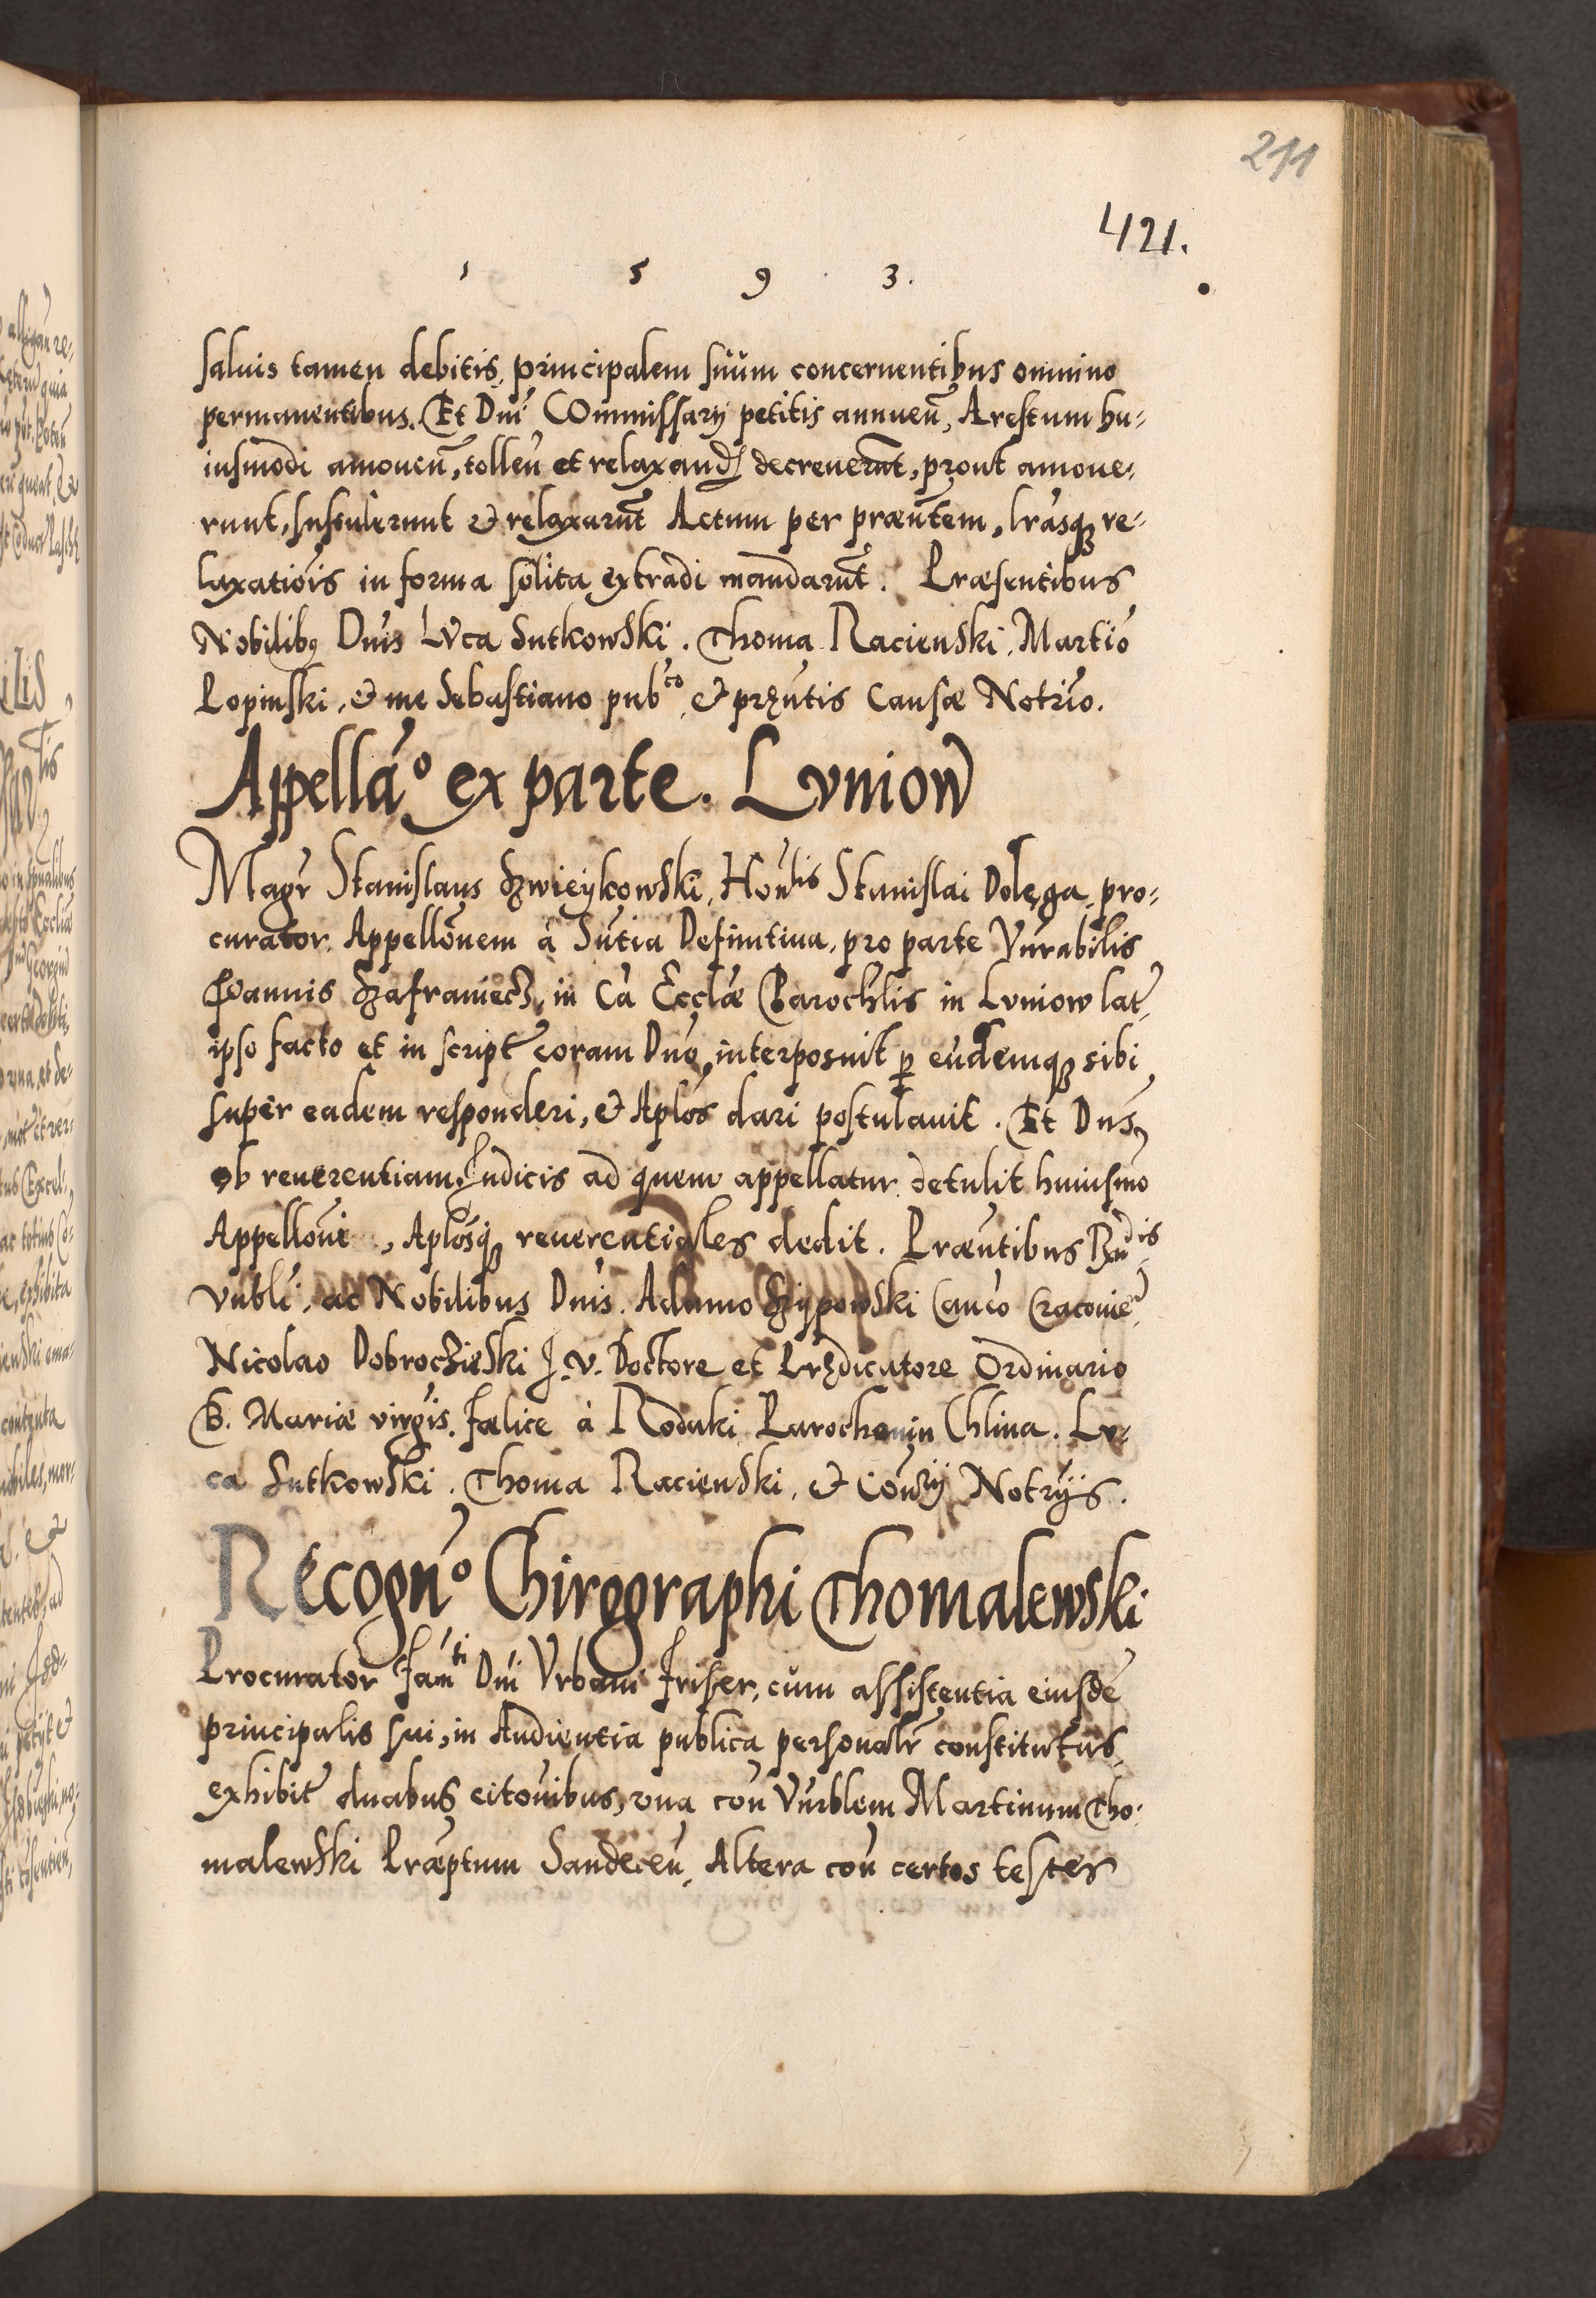 211
421.
1 5 9 3.
saluis tamen debitis, principalem suum concernentibus omnino
permanentibus. Et Dni Commissarij petitis annuen̄, Arestum hu-
iusmodi amouen̄, tollen̄ et relaxand decreuerūt, prout amoue-
runt, sustulerunt & relaxarūt Actum per præn̄tem, lrasq; re-
laxatiōis in forma solita extradi mandarūt. Præsentibus
Nobilibq Dnis Lvca Sutkowski. Thoma Racienski, Martio
Lopinski, & me Sebastiano pubco, & pręn̄tis Causæ Notrio.
Appellāo ex parte. Lvniow
Magr Stanislaus Szwieykowski, Honlis Stanislai Dolęga, pro-
curator. Appellōnem à Sn̄tia Definitiua, pro parte Vn̄rabilis
Joannis Szafraniecz, in Cā Ecclæ Parochlis in Lvniow lat,
ipso facto et in script coram Dno, interposuit ꝑ eūdemq; sibi
super eadem responderi, & Aplos dari postulauit. Et Dns,
ob reuerentiam Iudicis ad quem appellatur detulit huiusmō
Appellōni, Aplosq; reuerentiales dedit. Præn̄tibus Rndis
Vnbli, ac Nobilibus Dnis. Adamo Szypowski Canco Cracouien̄,
Nicolao Dobroczieski J. V. Doctore et Prędicatore Ordinario
B. Mariæ virgis. Fœlice à Rodaki Parocho in Chlina. Lv-
ca Sutkowski. Thoma Racienski, & Conrij Notrijs.
Recogn̄o Chirographi Thomalewski
Procurator Famti Dni Vrbani Friser, cum assistentia eiusdē
principalis sui, in Audientia publica personalr constitutus
exhibit duabus citōnibus, vna con̄ Vn̄rblem Martinum Tho-
malewski Præptum Sandecen̄, Altera con̄ certos testes